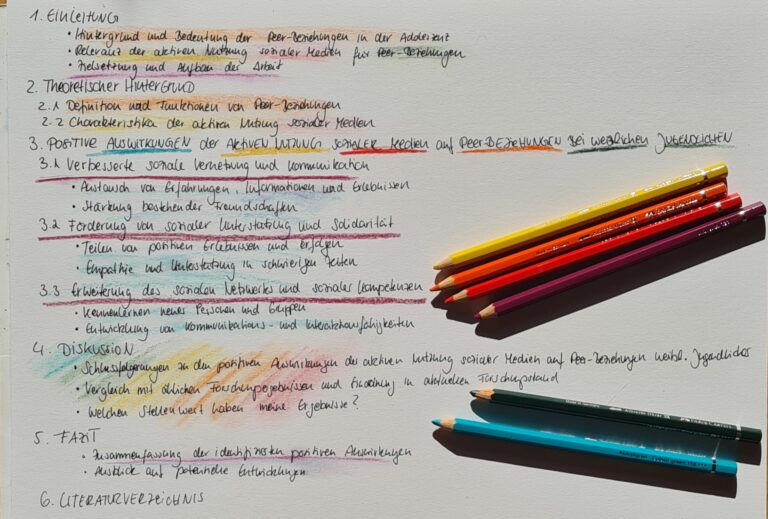 1. EINLEITUNG
• Hintergrund und Bedeutung der Peer-Beziehungen in der Adoleszenz
• Relevanz der aktiven Nutzung sozialer Medien für Peer-Beziehungen
• Zielsetzung und Aufbau der Arbeit
2. Theoretischer Hintergrund
2.1 Definition und Funktionen von Peer-Beziehungen
2.2 Charakteristika der aktiven Nutzung sozialer Medien
3. POSITIVE AUSWIRKUNGEN der AKTIVEN NUTZUNG SOZIALER MEDIEN auf PEER-BEZIEHUNGEN BEI WEIBLICHEN JUGENDLICHEN
3.1 Verbesserte soziale Vernetzung und Kommunikation
• Austausch von Erfahrungen, Informationen und Erlebnissen
• Stärkung bestehender Freundschaften
3.2 Förderung von sozialer Unterstützung und Solidarität
• Teilen von positiven Erlebnissen und Erfolgen
• Empathie und Unterstützung in schwierigen Zeiten
3.3 Erweiterung des sozialen Netzwerks und sozialer Kompetenzen
• Kennenlernen neuer Personen und Gruppen
• Entwicklung von Kommunikations- und Interaktionsfähigkeiten
4. DISKUSSION
• Schlussfolgerungen zu den positiven Auswirkungen der aktiven Nutzung sozialer Medien auf Peer-Beziehungen weibl. Jugendlicher
• Vergleich mit ähnlichen Forschungsergebnissen und Einordnung in aktuellen Forschungsstand
• Welchen Stellenwert haben meine Ergebnisse?
5. FAZIT
• Zusammenfassung der identifizierten positiven Auswirkungen
• Ausblick auf potentielle Entwicklungen
6. LITERATURVERZEICHNIS